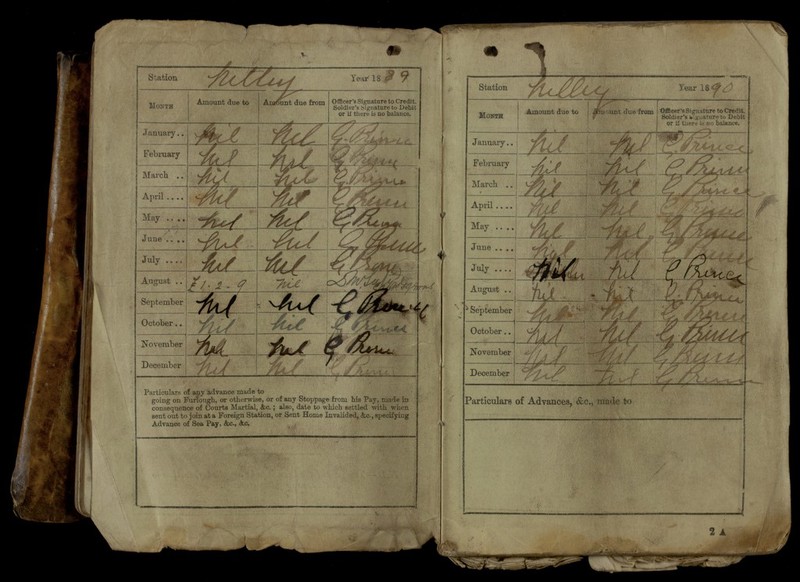 Station Nelley Year 1889
MONTH Amount due to Amount due from Officer's Signature to Credit.
Soldier's signature to Debit
or if there is no balance.
January.. Nil Nil G Prince
February Nil Nil G Prince
March .. Nil Nil G Prince
April .... Nil Nil G Prince
May .... Nil Nil G Prince
June .... Nil Nil G Prince
July .... Nil Nil G Prince
August .. £1-2-9 Nil
September Nil Nil G Prince
October.. Nil Nil G Prince
November Nil Nil G Prince
December Nil Nil G Prince
Particulars of any advance made to
going on Furlough, or otherwise, or of any Stoppage from his Pay, made in
consequence of Courts Martial, &c.; also, date to which settled with when
sent out to join at a Foreign Station, or Sent Home Invalided, &c., specifying
Advance of Sea Pay, &c., &c.
Station Nelley Year 1890
MONTH Amount due to Amount due from Officer's Signature to Credit.
Soldier's signature to Debit
or if there is no balance.
January.. Nil Nil G Prince
February Nil Nil G Prince
March .. Nil Nil G Prince
April .... Nil Nil G Prince
May .... Nil Nil G Prince
June .... Nil Nil G Prince
July .... Nil Nil G Prince
August .. Nil Nil G Prince
September Nil Nil G Prince
October.. Nil Nil G Prince
November Nil Nil G Prince
December Nil Nil G Prince
Particulars of Advances, &c., made to
2 A